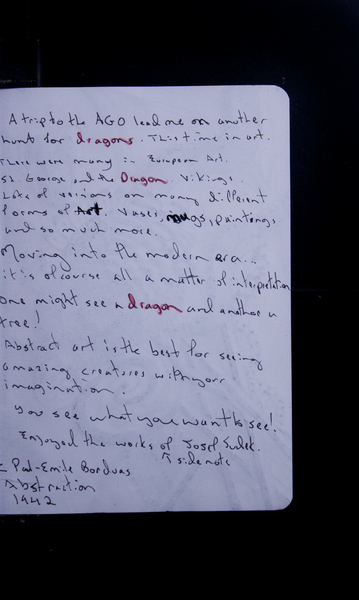 A trip to the AGO lead me on another
hunt for dragons. This time in art.
There were many in European Art.
St. George and the Dragon. Vikings.
Lots of versions on many different
forms of Art. Vases, mugs, paintings
and so much more.
Moving into the modern era...
it is of course all a matter of interpretation
One might see a dragon and another a
tree!
Abstract art is the best for seeing
amazing creatures with your
imagination.
You see what you want to see!
Enjoyed the works of Josef Sudek.
↑ side note
Paul-Emile Borduas
Abstraction
1942